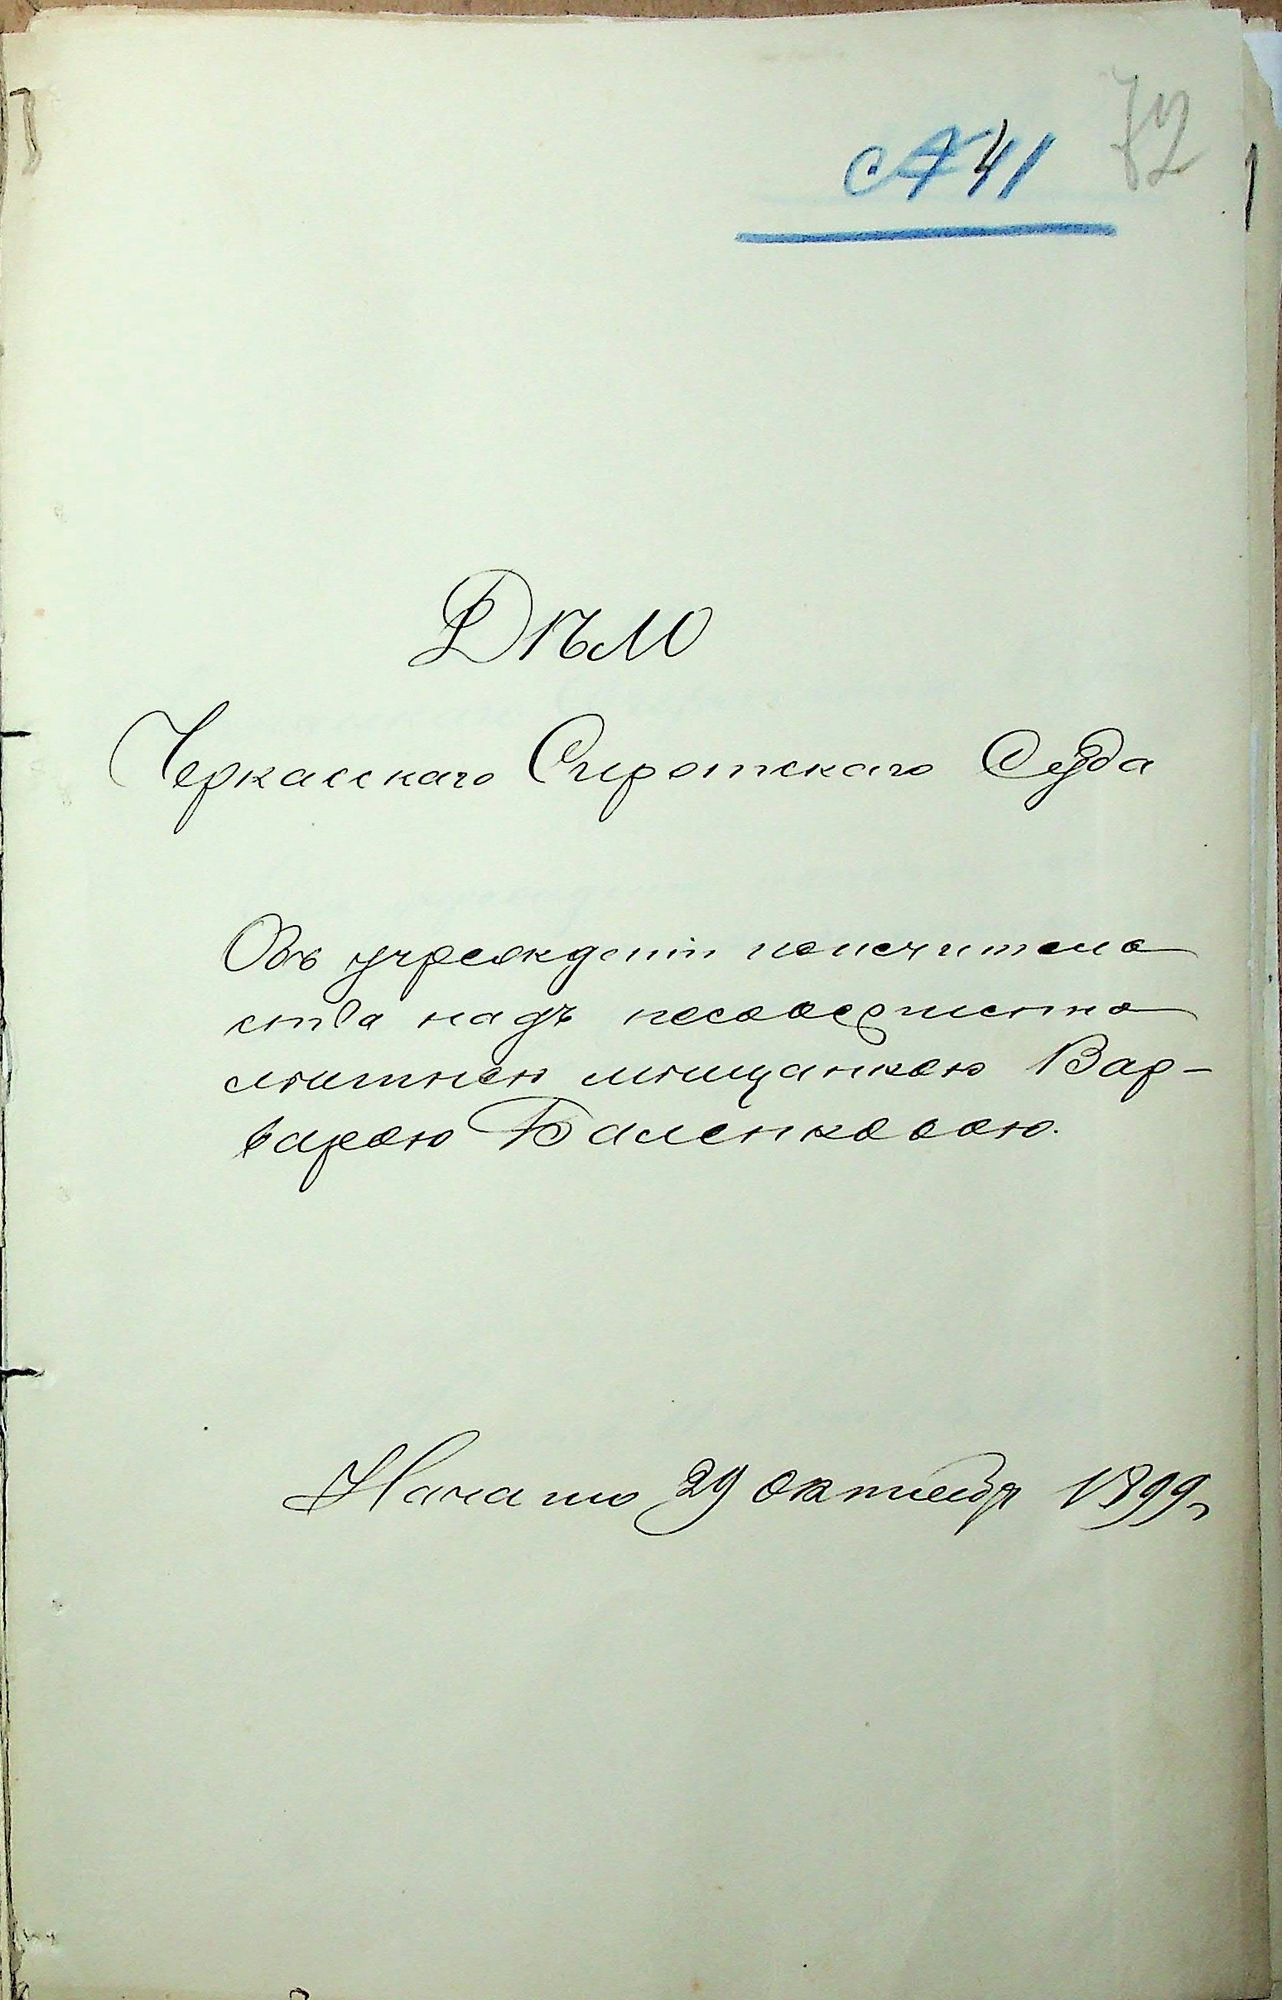 № 41
72
Дѣло
Черкасскаго Сиротскаго Суда
Объ учрежденіи попечитель
ства надъ несовершенно
лѣтнею мѣщанкою Вар-
варою Баленковою.
Начато 29 октября 1899 г.